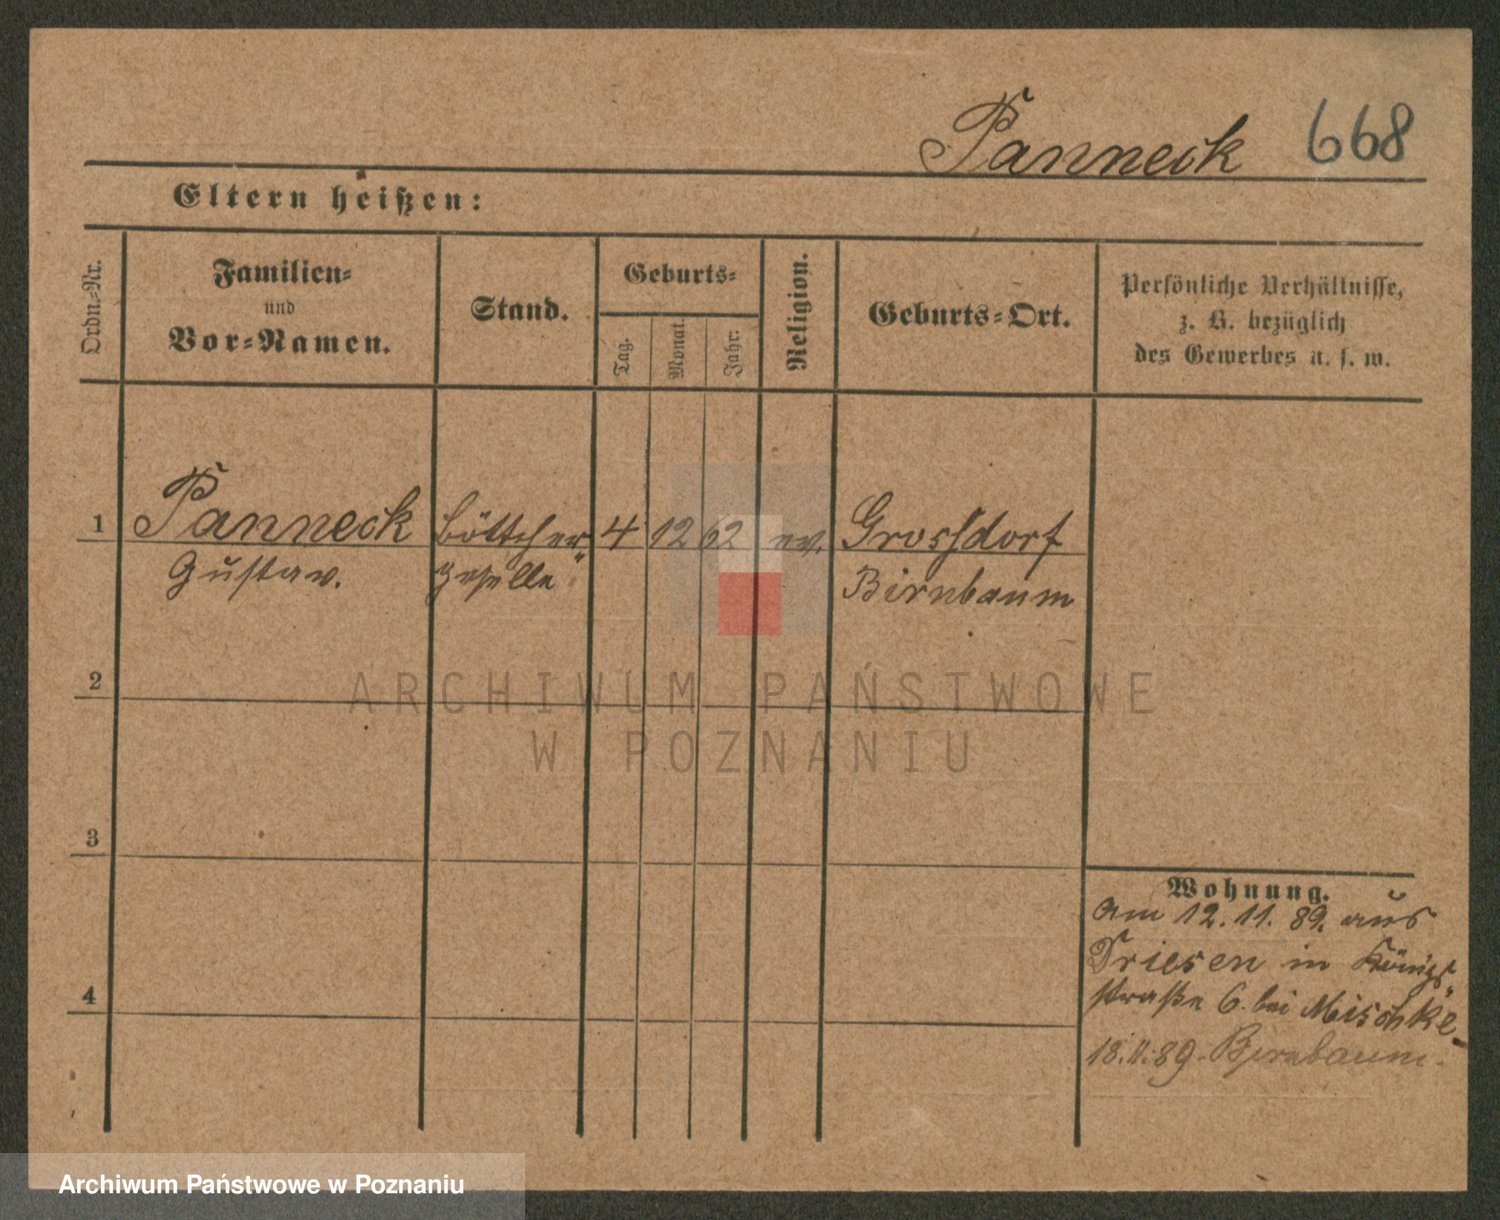 Panneck 668
Eltern heißen:
Ordn.-Nr.
Familien-
und
Vor-Namen.
Stand.
Geburts-
Tag.
Monat.
Jahr.
Religion.
Geburts-Ort.
Persönliche Verhältnisse,
z. B. bezüglich
des Gewerbes u. s. w.
1 Panneck Böttcher 4 12 62 ev. Grossdorf
Gustav. geselle Birnbaum
2
3
4
Wohnung.
am 12.11.89. aus
Driesen in Königs
straße 6. bei Mischke
18.11.89. Birnbaum.
ARCHIWUM PAŃSTWOWE
W POZNANIU
Archiwum Państwowe w Poznaniu